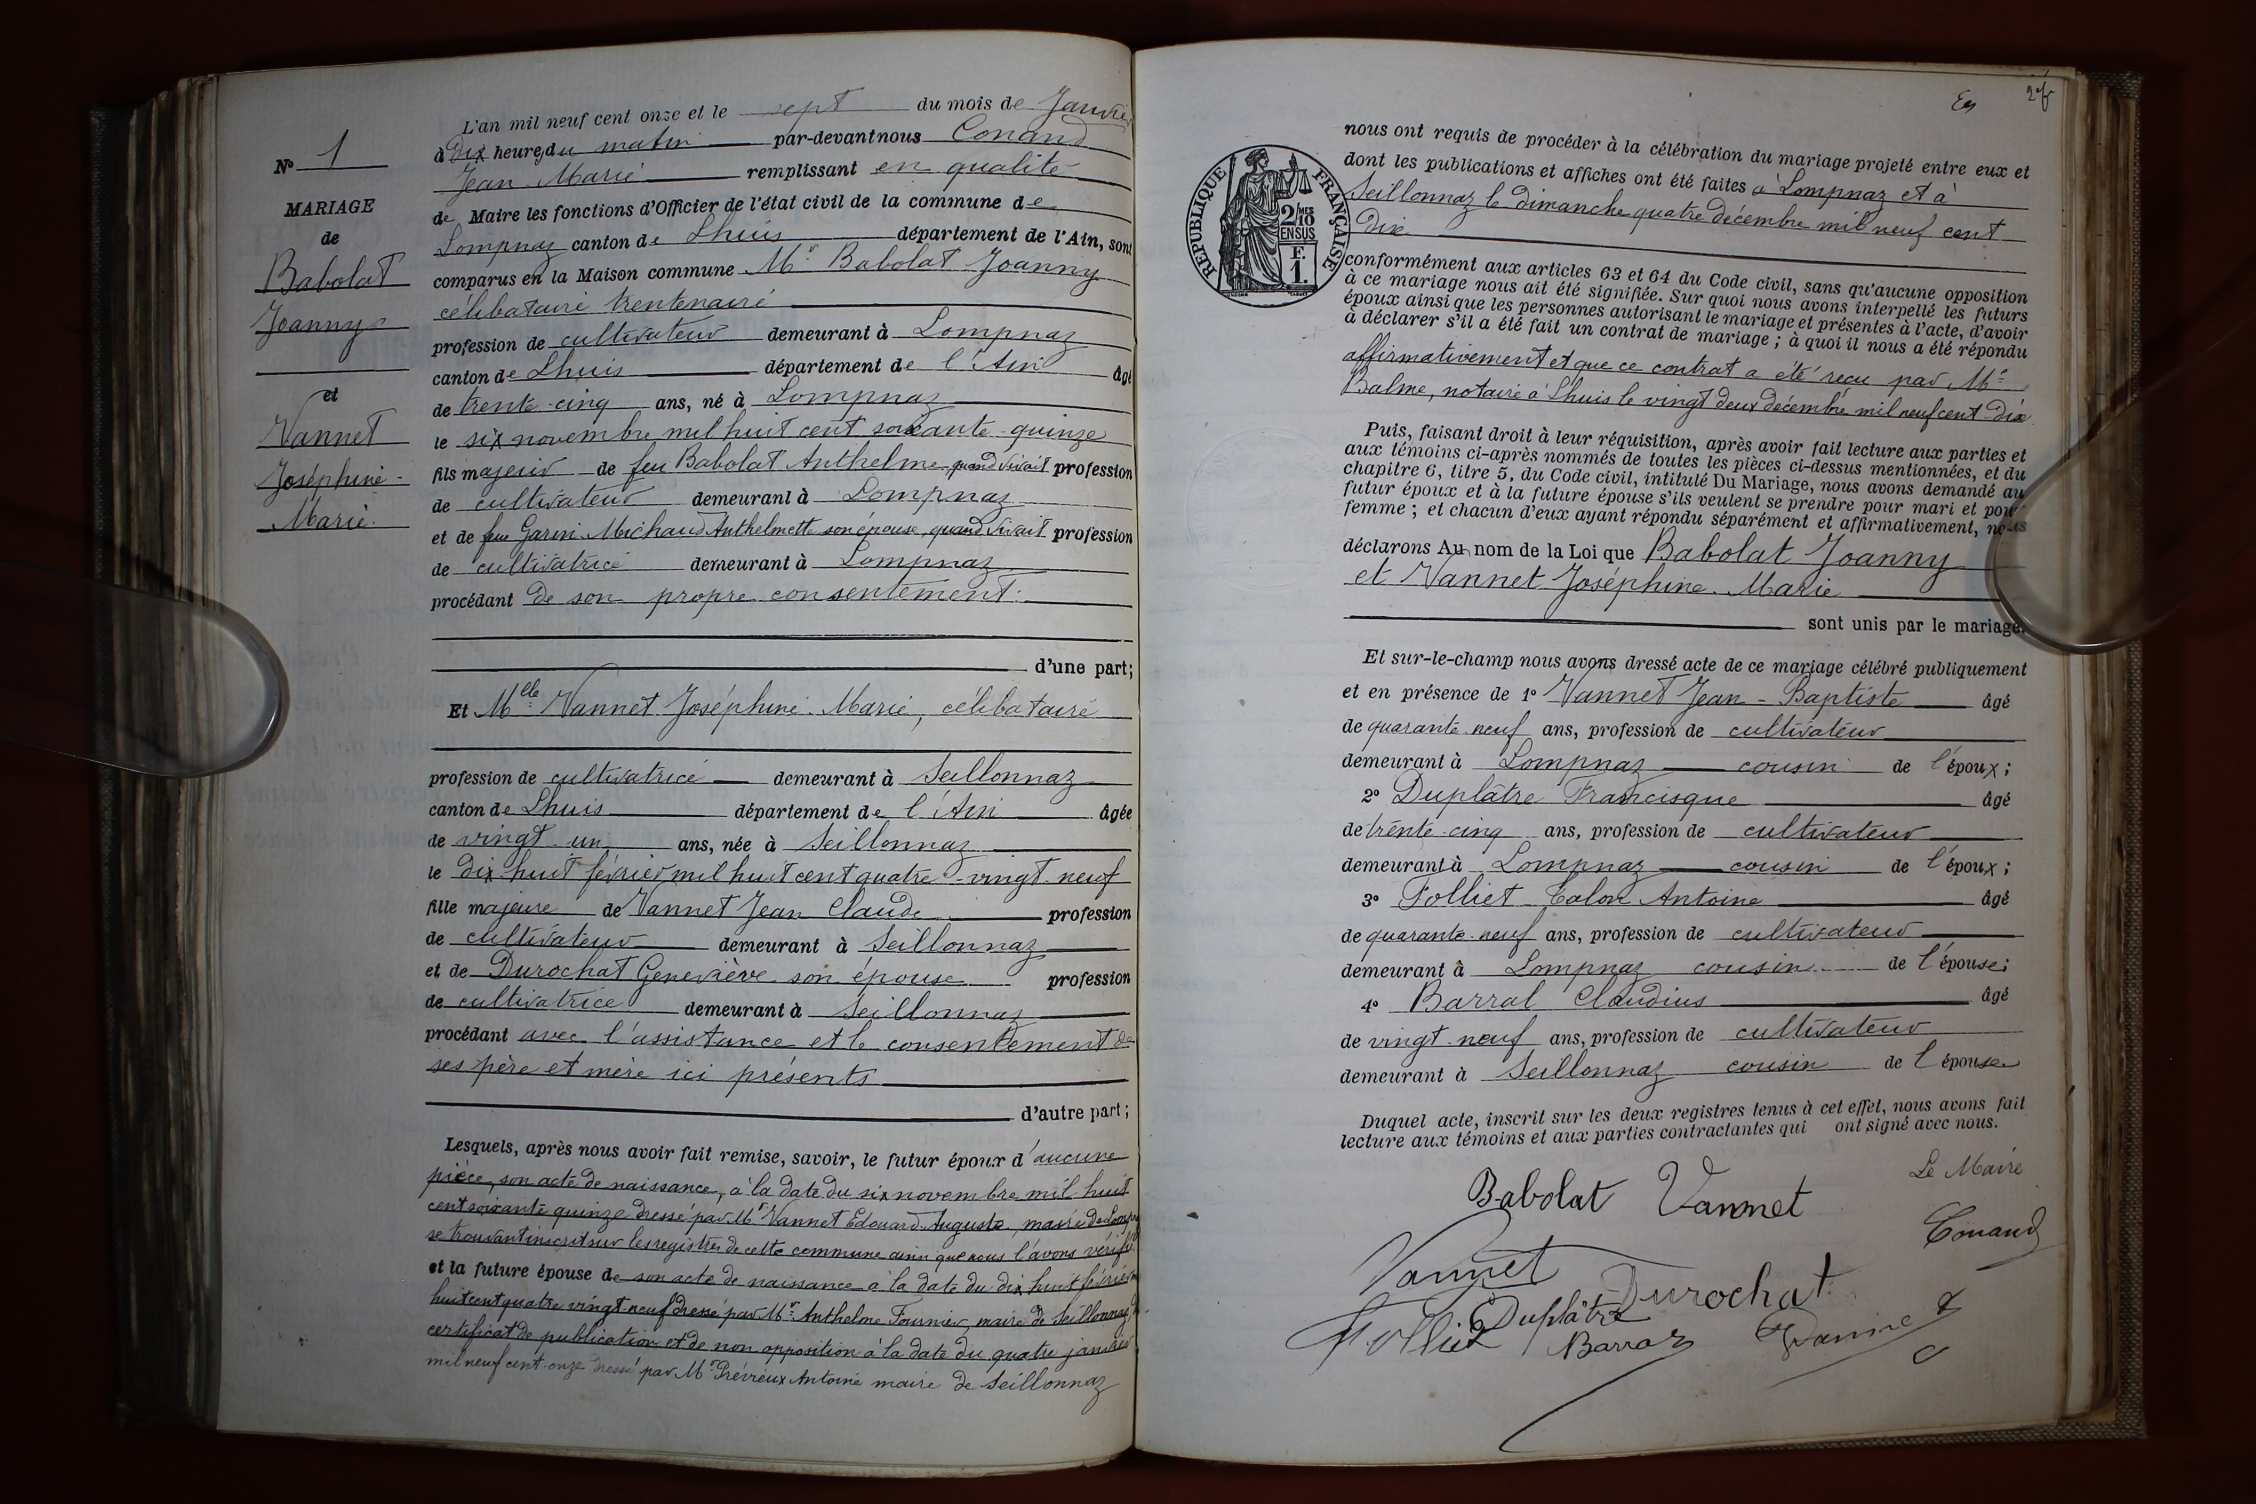 N° 1
MARIAGE
de
Babolat
Joanny
et
Vannet
Joséphine-
Marie.
L'an mil neuf cent onze et le sept du mois de Janvier
à dix heures du matin par-devant nous Conand
Jean Marie remplissant en qualité
de Maire les fonctions d'Officier de l'état civil de la commune de
Lompnaz canton de Lhuis département de l'Ain, sont
comparus en la Maison commune Mr Babolat Joanny
célibataire trentenaire
profession de cultivateur demeurant à Lompnaz
canton de Lhuis département de l'Ain âgé
de trente-cinq ans, né à Lompnaz
le six novembre mil huit cent soixante-quinze
fils majeur de feu Babolat Anthelme quand vivait profession
de cultivateur demeurant à Lompnaz
et de feu Garin-Michaud Anthelmette son épouse, quand vivait profession
de cultivatrice demeurant à Lompnaz
procédant de son propre consentement.
d'une part;
Et Melle Vannet Joséphine-Marie, célibataire
profession de cultivatrice demeurant à Seillonnaz
canton de Lhuis département de l'Ain âgée
de vingt-un ans, née à Seillonnaz
le dix-huit février mil huit cent quatre-vingt-neuf
fille majeure de Vannet Jean Claude profession
de cultivateur demeurant à Seillonnaz
et de Durochat Geneviève son épouse profession
de cultivatrice demeurant à Seillonnaz
procédant avec l'assistance et le consentement de
ses père et mère ici présents
d'autre part;
Lesquels, après nous avoir fait remise, savoir, le futur époux d'aucune
pièce, son acte de naissance, à la date du six novembre mil huit
cent soixante quinze dressé par Mr Vannet Edouard Auguste, maire de Lompnaz
se trouvant inscrit sur les registres de cette commune ainsi que nous l'avons vérifié
et la future épouse de son acte de naissance à la date du dix huit février
huit cent quatre vingt-neuf dressé par Mr Anthelme Fournier, maire de Seillonnaz,
certificat de publication et de non opposition à la date du quatre janvier
mil neuf cent-onze dressé par Mr Prévieux Antoine maire de Seillonnaz
RÉPUBLIQUE FRANÇAISE
2/MES
10
EN SUS
F.
1.
nous ont requis de procéder à la célébration du mariage projeté entre eux et
dont les publications et affiches ont été faites à Lompnaz et à
Seillonnaz le dimanche quatre décembre mil neuf cent
dix
conformément aux articles 63 et 64 du Code civil, sans qu'aucune opposition
à ce mariage nous ait été signifiée. Sur quoi nous avons interpellé les futurs
époux ainsi que les personnes autorisant le mariage et présentes à l'acte, d'avoir
à déclarer s'il a été fait un contrat de mariage; à quoi il nous a été répondu
affirmativement et que ce contrat a été reçu par Me
Balme, notaire à Lhuis le vingt deux décembre mil neuf cent dix
Puis, faisant droit à leur réquisition, après avoir fait lecture aux parties et
aux témoins ci-après nommés de toutes les pièces ci-dessus mentionnées, et du
chapitre 6, titre 5, du Code civil, intitulé Du Mariage, nous avons demandé au
futur époux et à la future épouse s'ils veulent se prendre pour mari et pour
femme; et chacun d'eux ayant répondu séparément et affirmativement, nous
déclarons Au nom de la Loi que Babolat Joanny
et Vannet Joséphine-Marie
sont unis par le mariage.
Et sur-le-champ nous avons dressé acte de ce mariage célébré publiquement
et en présence de 1° Vannet Jean-Baptiste âgé
de quarante-neuf ans, profession de cultivateur
demeurant à Lompnaz cousin de l'époux;
2° Duplâtre Francisque âgé
de trente-cinq ans, profession de cultivateur
demeurant à Lompnaz cousin de l'époux;
3° Folliet-Calon Antoine âgé
de quarante-neuf ans, profession de cultivateur
demeurant à Lompnaz cousin de l'épouse;
4° Barral Claudius âgé
de vingt-neuf ans, profession de cultivateur
demeurant à Seillonnaz cousin de l'épouse
Duquel acte, inscrit sur les deux registres tenus à cet effet, nous avons fait
lecture aux témoins et aux parties contractantes qui ont signé avec nous.
Le Maire
Babolat Vannet
Conand
Vannet Durochat
Folliet Duplâtre Barral Vannet